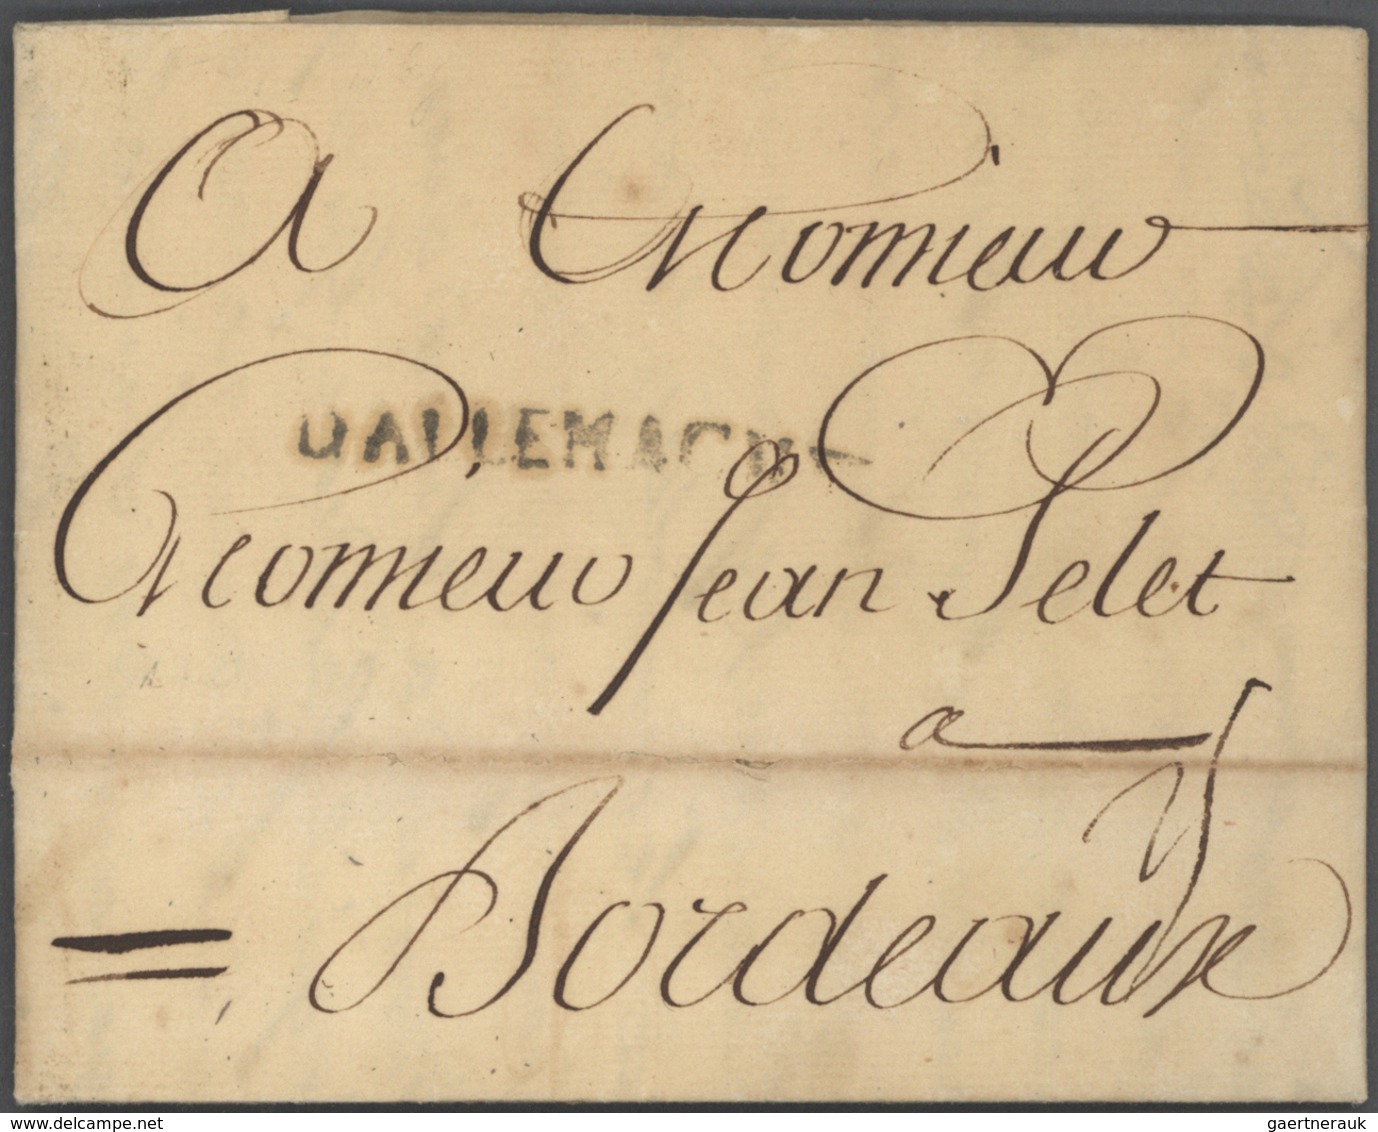 A Monsieur
DALLEMAGNE
Monsieur Jean Pelet
a
Bordeaux
gaertnerauk